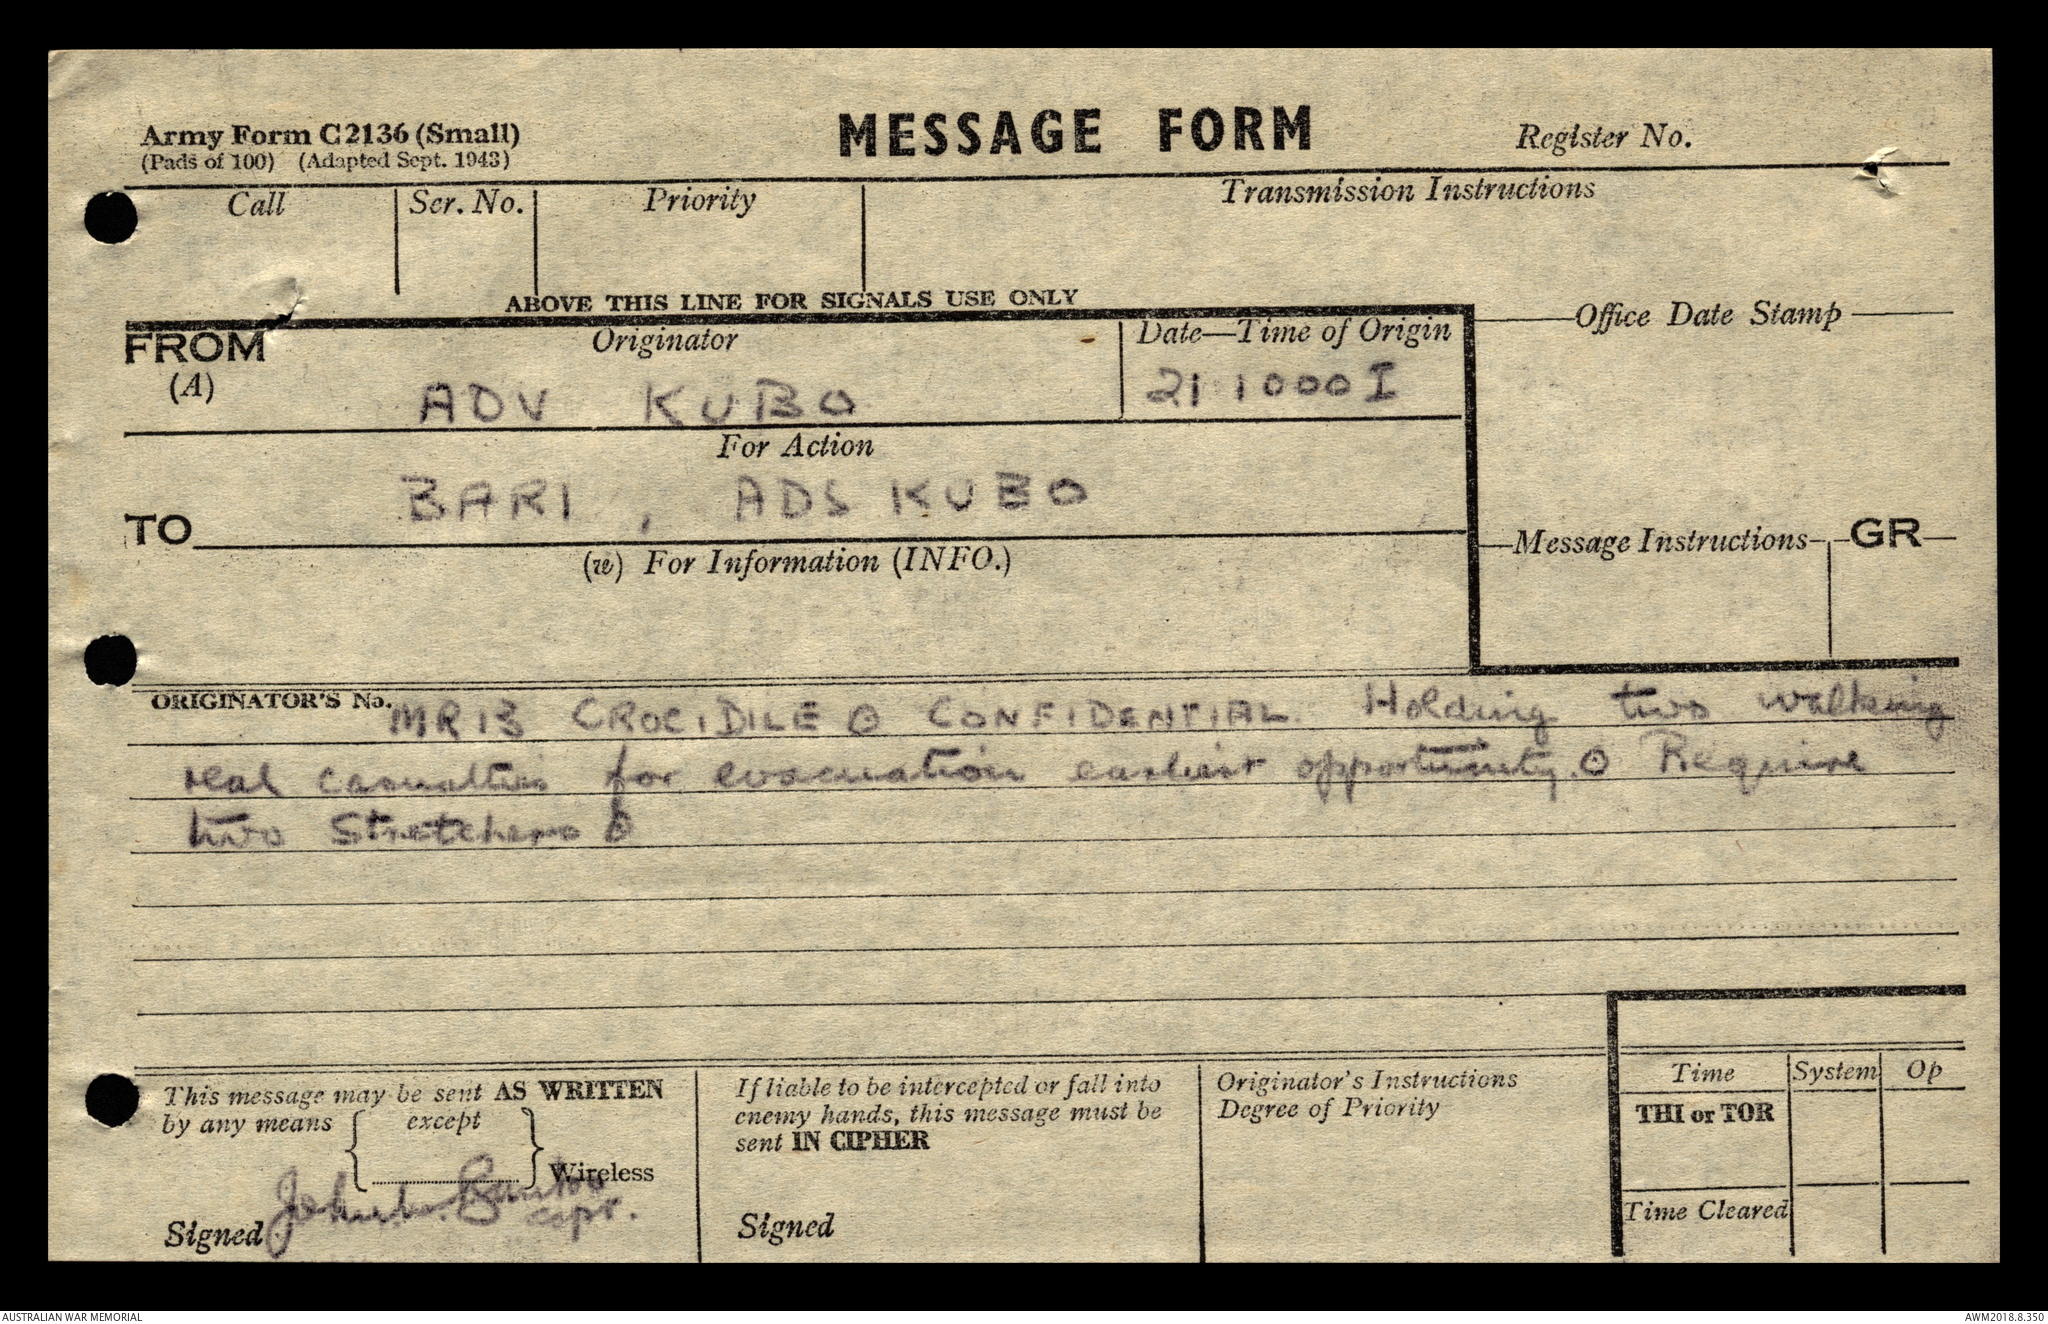 Army Form C2136 (Small)
(Pads of 100) (Adapted Sept. 1943)
MESSAGE FORM
Register No.
Call
Ser. No.
Priority
Transmission Instructions
ABOVE THIS LINE FOR SIGNALS USE ONLY
FROM
(A)
Originator
ADV KUBO
Date—Time of Origin
211000I
Office Date Stamp
For Action
TO
BARI, ADS KUBO
(w) For Information (INFO.)
Message Instructions
GR
ORIGINATOR'S No.
MR13 CROCIDILE ⊙ CONFIDENTIAL. Holding two walking
real casualties for evacuation earliest opportunity. ⊙ Require
two Stretchers ⊙
This message may be sent AS WRITTEN
by any means except
Wireless
Signed
capt.
If liable to be intercepted or fall into
enemy hands, this message must be
sent IN CIPHER
Signed
Originator's Instructions
Degree of Priority
Time
System
Op
THI or TOR
Time Cleared
AUSTRALIAN WAR MEMORIAL
AWM2018.8.350